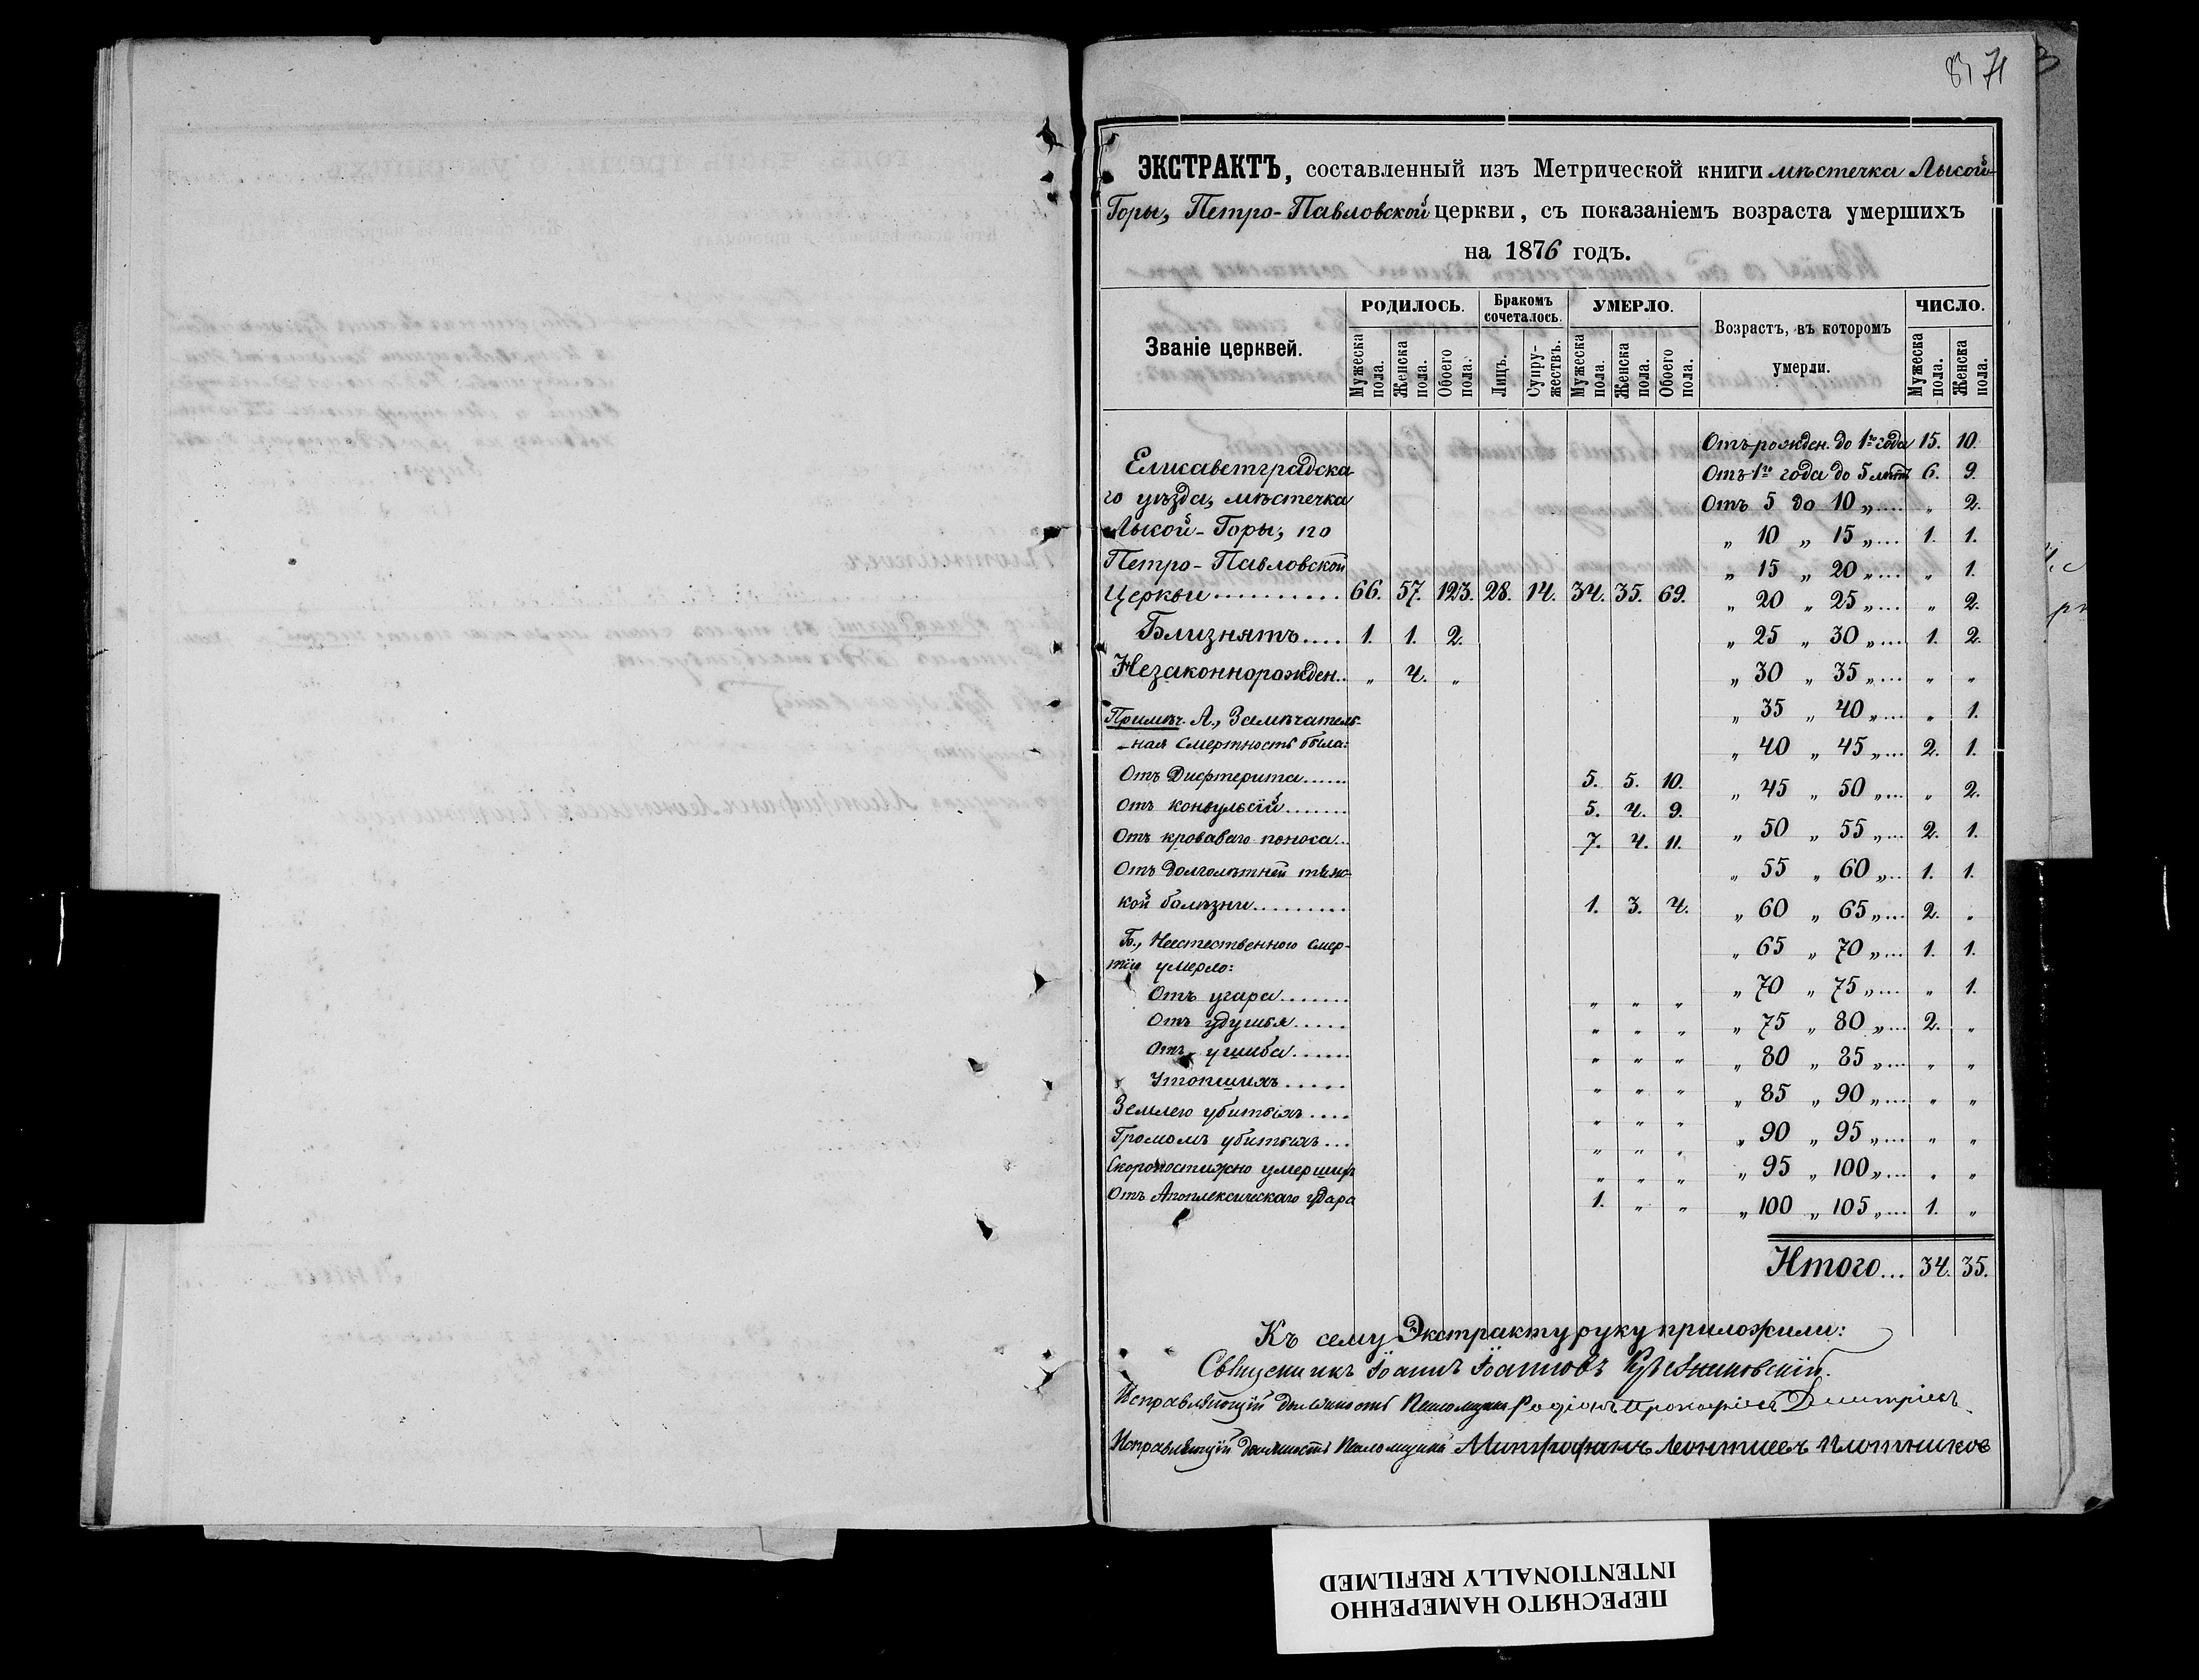 71
ЭКСТРАКТЪ, составленный изъ Метрической книги мѣстечка Лысой-
Горы, Петро-Павловской церкви, съ показаніемъ возраста умершихъ
на 1876 годъ.
Званіе церквей.
РОДИЛОСЬ.
Мужеска пола.
Женска пола.
Обоего пола.
Бракомъ сочеталось.
Лицъ.
Супру-жествъ.
УМЕРЛО.
Мужеска пола.
Женска пола.
Обоего пола.
Возрастъ, въ которомъ умерли.
ЧИСЛО.
Мужеска пола.
Женска пола.
Елисаветградска-
го уѣзда, мѣстечка
Лысой-Горы, по
Петро-Павловской
Церкви .......... 66. 57. 123. 28. 14. 34. 35. 69.
Близнятъ.... 1. 1. 2.
Незаконнорожден.. „ 4. „
Примѣч. А., Замѣчатель-
-ная смертность была:
Отъ Дифтерита...... 5. 5. 10.
Отъ конвульсій....... 5. 4. 9.
Отъ кроваваго поноса... 7. 4. 11.
Отъ долголѣтней тяж-
кой болѣзни.......... 1. 3. 4.
Б., Неестественною смер-
тію умерло:
Отъ угара....... „ „ „
Отъ удушья..... „ „ „
Отъ ушиба...... „ „ „
Утопшихъ..... „ „ „
Землею убитыхъ.... „ „ „
Громомъ убитыхъ... „ „ „
Скоропостижно умершихъ „ „ „
Отъ Апоплексическаго удара 1. „ „
Отъ рожден. до 1го года 15. 10.
Отъ 1го года до 5 лѣтъ 6. 9.
Отъ 5 до 10 „.... „ 2.
„ 10 „ 15 „... 1. 1.
„ 15 „ 20 „... „ 1.
„ 20 „ 25 „... „ 2.
„ 25 „ 30 „... 1. 2.
„ 30 „ 35 „... „ „
„ 35 „ 40 „... „ 1.
„ 40 „ 45 „... 2. 1.
„ 45 „ 50 „... „ 2.
„ 50 „ 55 „... 2. 1.
„ 55 „ 60 „... 1. 1.
„ 60 „ 65 „... 2. „
„ 65 „ 70 „... 1. 1.
„ 70 „ 75 „... „ 1.
„ 75 „ 80 „... 2. „
„ 80 „ 85 „... „ „
„ 85 „ 90 „... „ „
„ 90 „ 95 „... „ „
„ 95 „ 100 „... „ „
„ 100 „ 105 „... 1. „
Итого... 34. 35.
Къ сему Экстракту руку приложили:
Священникъ Іоаннъ Іоанновъ
Исправляющій должность Псаломщика Родіонъ Прокофіевъ Дмитріевъ
Исправляющій должность Псаломщика Митрофанъ Леонтиевъ Плотников
ПЕРЕСНЯТО НАМЕРЕННО
INTENTIONALLY REFILMED